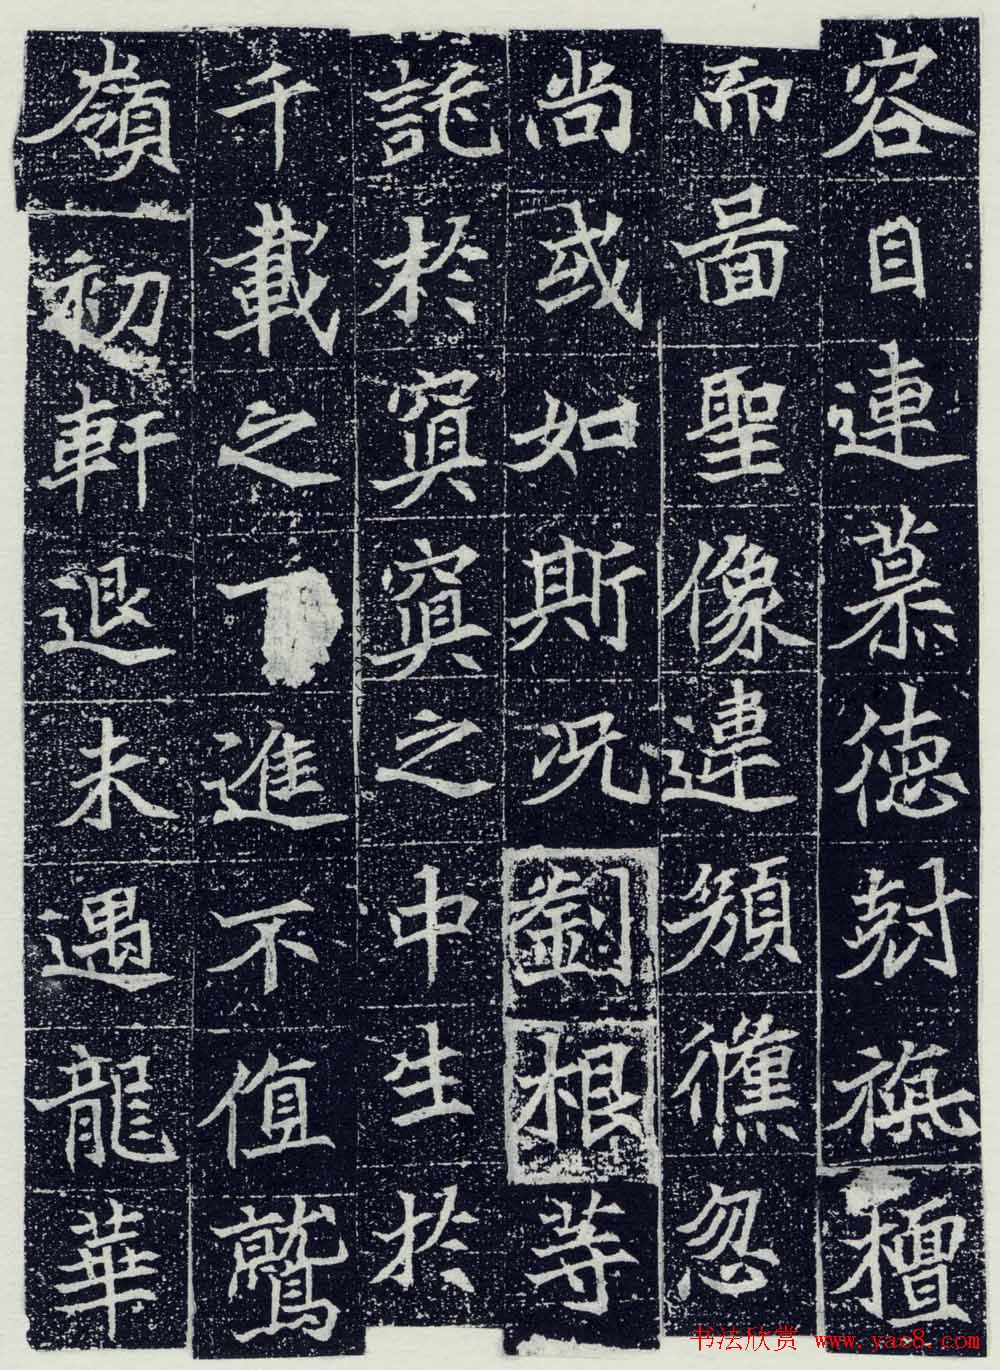 容目連慕德尅旃檀
而啚聖像違顏儵忽
尚或如斯况劉根等
託於冥冥之中生於
千載之進不值鷲
嶺初軒退未遇龍華
书法欣赏 www.yac8.com